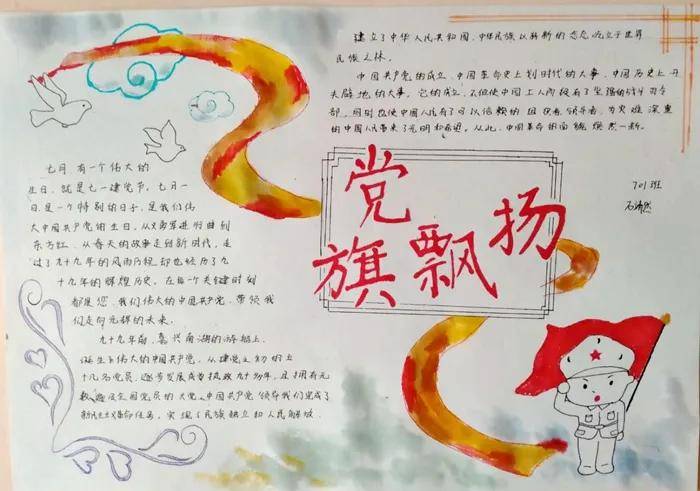 七月有一个伟大的
生日，就是七一建党节，七月一
日是一个特别的日子，是我们伟
大中国共产党的生日，从义勇军进行曲到
东方红，从春天的故事走进新时代，走
过了九十九年的风雨历程，却也经历了九
十九年的辉煌历史，在每一个关键时刻
都是您，我们伟大的中国共产党，带领我
们走向光辉的未来。
九十九年前，嘉兴南湖的游船上，
诞生了伟大的中国共产党，从建党之初的五
十几名党员，逐步发展成为执政九十多年，且拥有元
数遍及全国党员的大党，中国共产党领导我们完成了
新民主主义革命任务，实现了民族独立和人民解放，
建立了中华人民共和国，中华民族以崭新的姿态屹立于世界
民族之林。
中国共产党的成立，中国革命史上划时代的大事，中国历史上开
天辟地的大事。它的成立，不但使中国工人阶级有了坚强的战斗司令
部，同时也使中国人民有了可以信赖的组织者领导者，为灾难深重
的中国人民带来了光明和希望。从此，中国革命的面貌焕然一新。
701班
党
旗飘扬